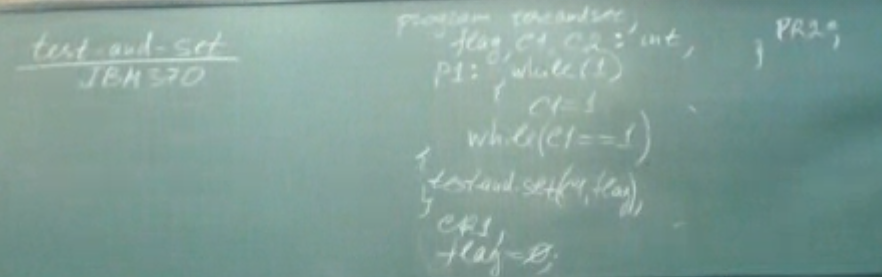 test-and-set
IBM 370
program testandset,
flag, C1, C2 : int,
P1: while(1)
{
C1=1
while(C1==1)
{
test-and-set(C1, flag),
}
CR1,
flag=0;
PR2;
}